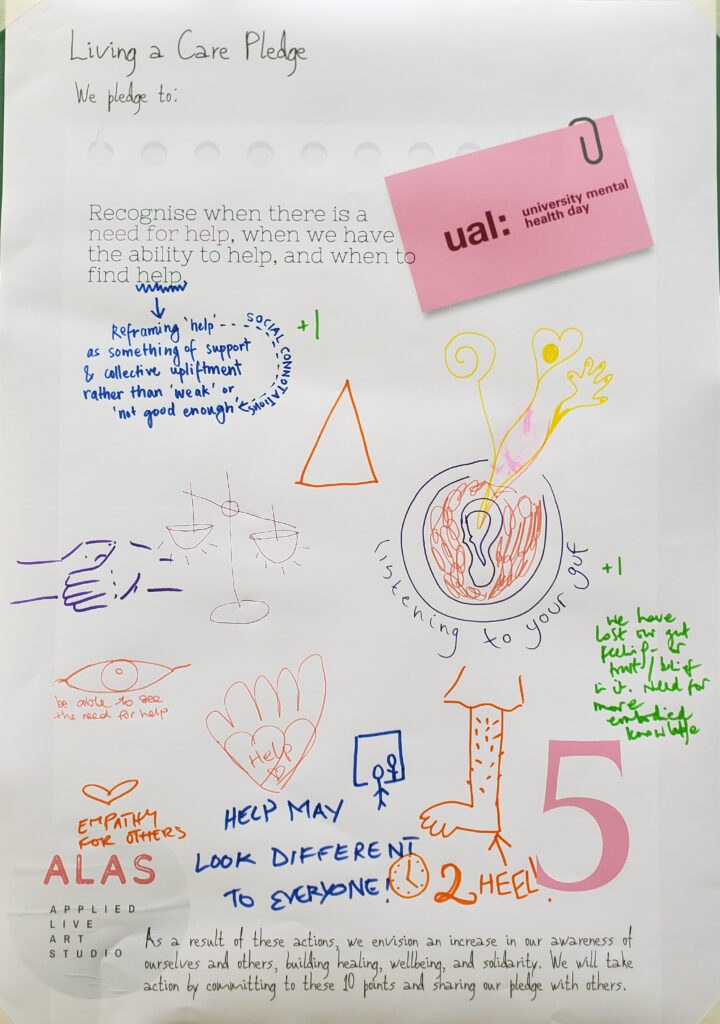 Living a Care Pledge
We pledge to:
ual: university mental
health day
Recognise when there is a
need for help, when we have
the ability to help, and when to
find help.
Reframing 'help'
as something of support
& collective upliftment
rather than 'weak' or
'not good enough'
SOCIAL CONNOTATIONS
+1
listening to your gut
+1
we have
lost our gut
feeling - or
trust/belief
in it. Need for
more
embodied
knowledge
be able to see
the need for help
Help
EMPATHY
FOR OTHERS
HELP MAY
LOOK DIFFERENT
TO EVERYONE!
2 HEEL!
5
ALAS
APPLIED
LIVE
ART
STUDIO
As a result of these actions, we envision an increase in our awareness of
ourselves and others, building healing, wellbeing, and solidarity. We will take
action by committing to these 10 points and sharing our pledge with others.